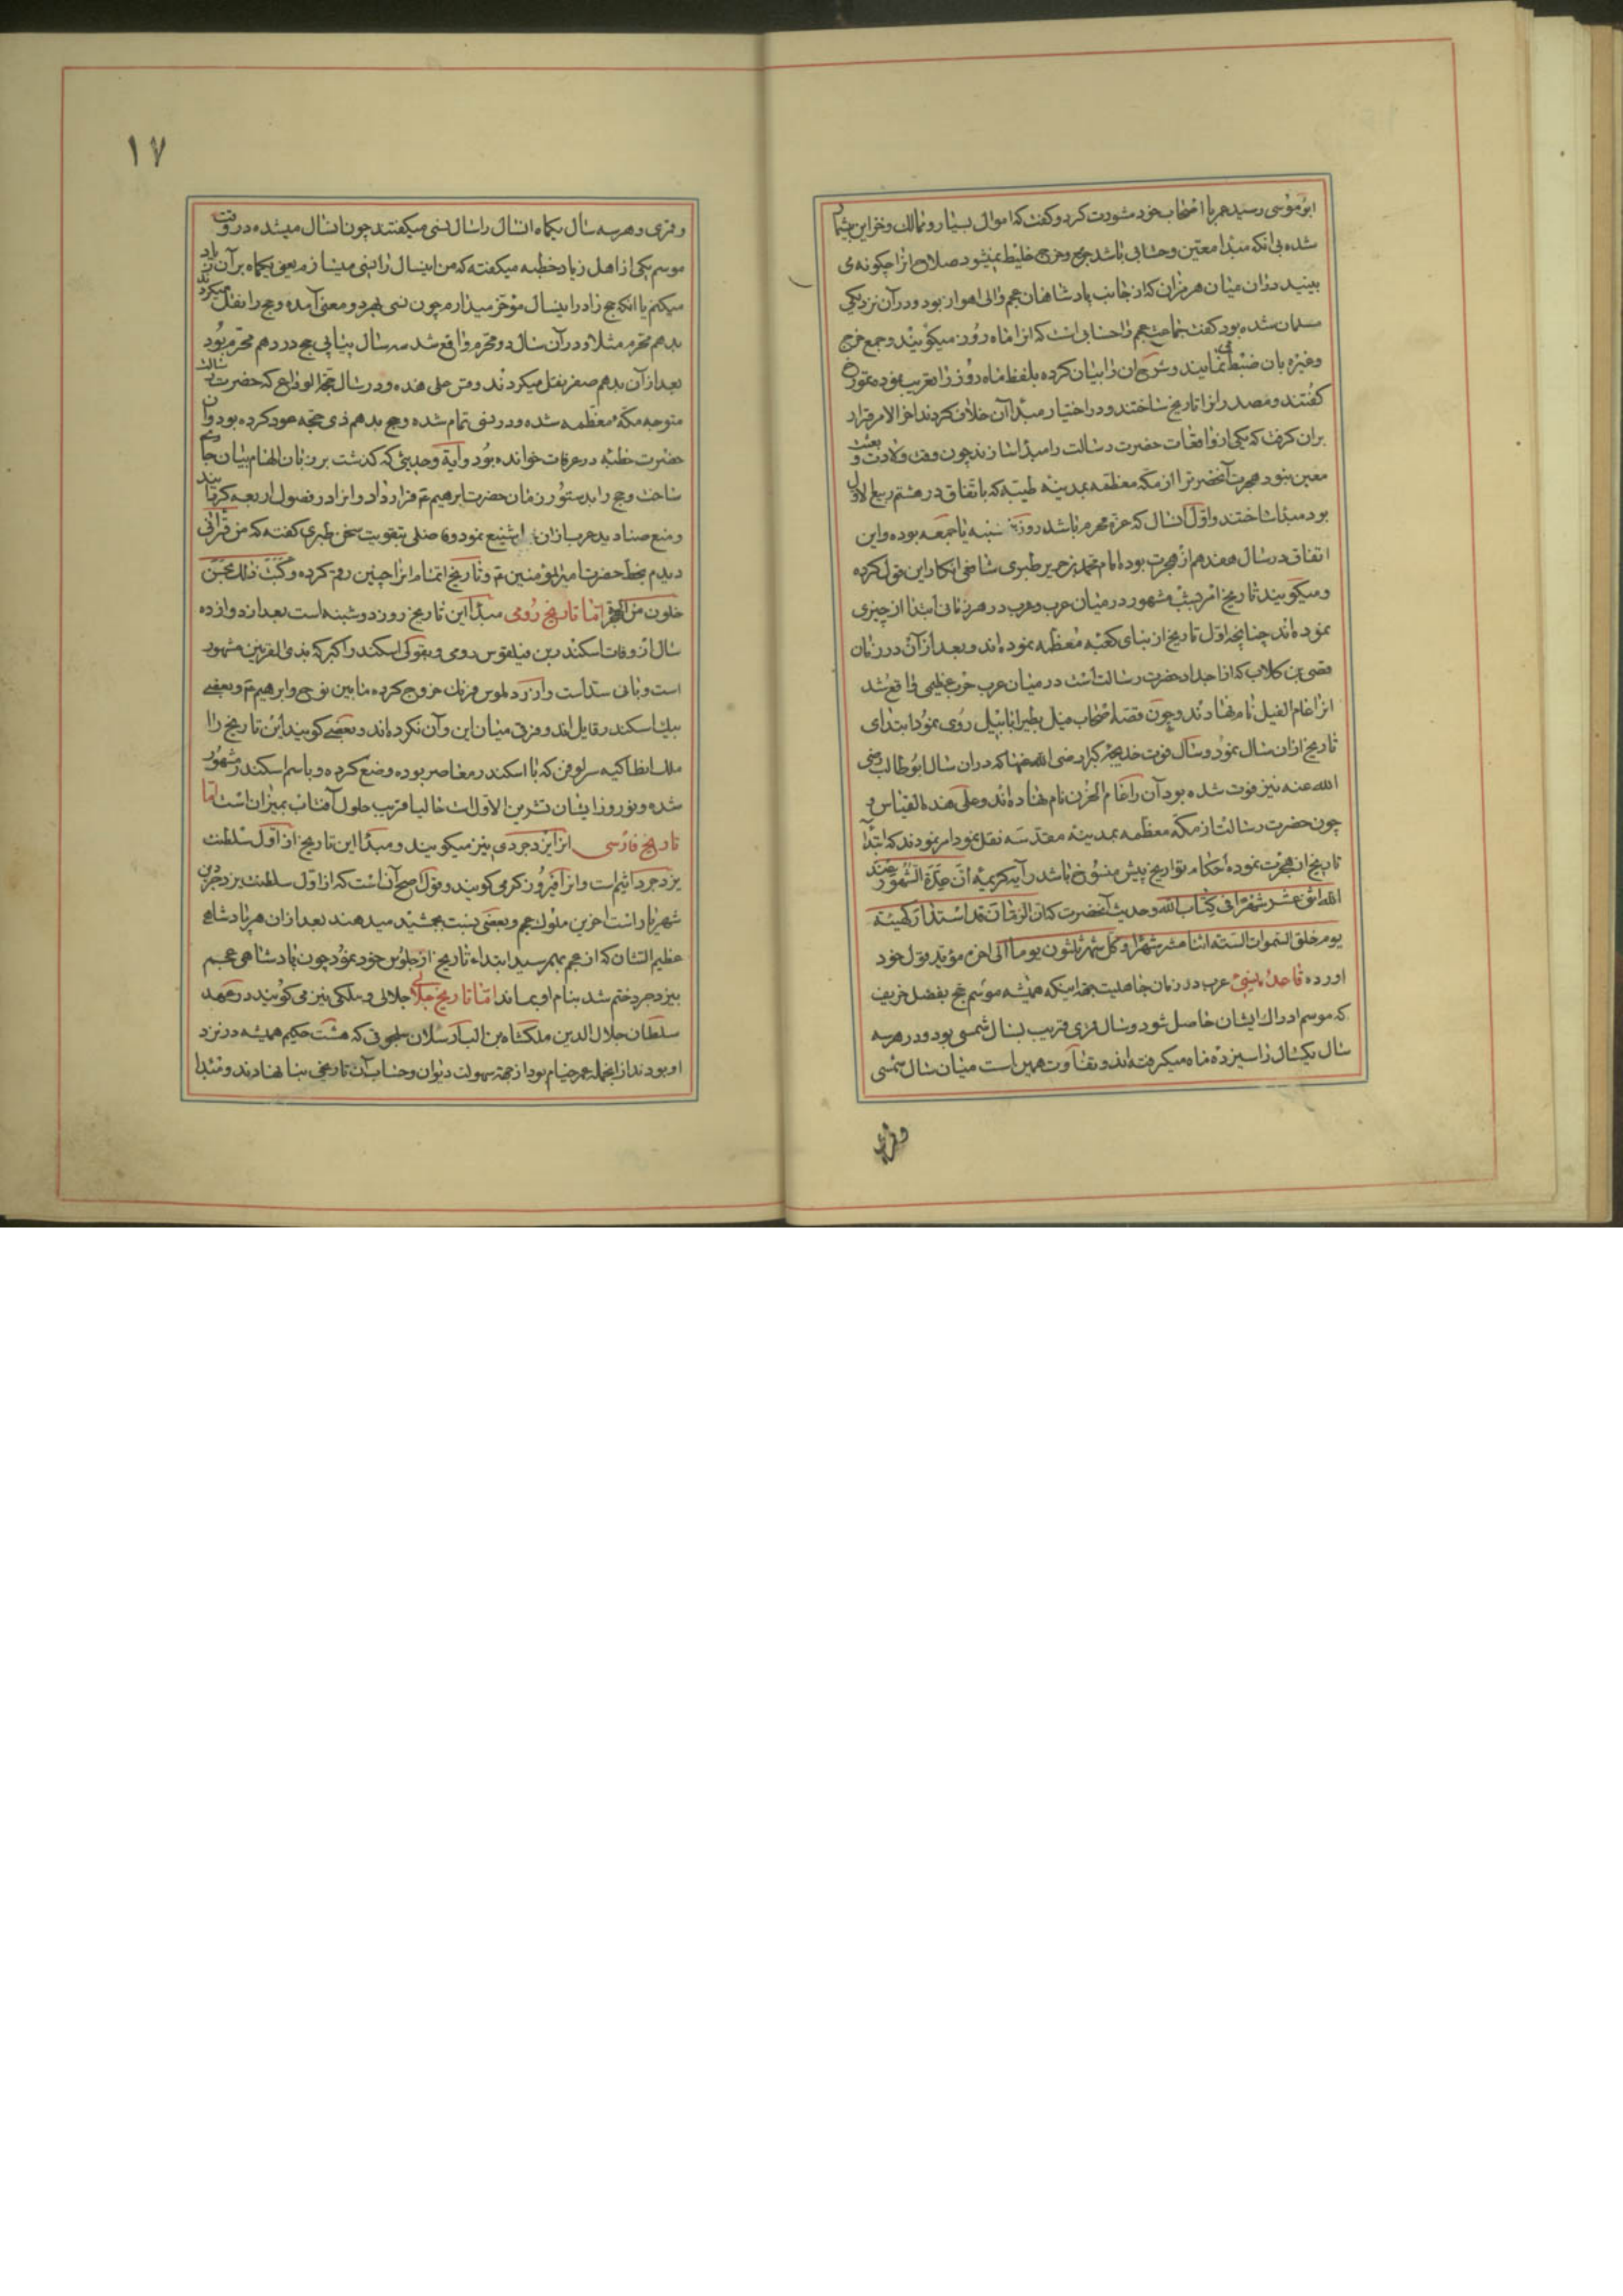 ابوموسی رسید عمر با اصحاب خود مشورت کرد و گفت که اموال بسیار و ممالک و خزاین بیشمار
شده بی انکه مبدا معین و حسابی باشد جمع و خرج خلیط میشود صلاح انرا چکونه می
بینید دران میان هرمزان که از جانب پادشاهان عجم والی اهواز بود و در آن نزدیکی
مسلمان شده بود کفت جماعت عجم را حسابی است که انرا ماه روز میکویند و جمع و خرج
وغیره بان ضبط می نمایند و شرح ان را بیان کرده بلفظ ماه روز را تعریب نموده مورخ
کفتند و مصدر انرا تاریخ ساختند و در اختیار مبدا آن خلاف کردند اخر الامر قرار
بران کرفت که یکی از واقعات حضرت رسالت را مبدا سازند چون وقت ولادت و بعثت
معین نبود هجرت آنحضرت را از مکه معظمه بمدینه طیبه که باتفاق در هشتم ربیع الاول
بود مبدا ساختند و اول آنسال که غره محرم باشد روز پنجشنبه یا جمعه بوده و این
اتفاق در سال هفدهم از هجرت بوده امام محمد بن جریر طبری شافعی انکار این قول کرده
و میکویند تاریخ امریست مشهور در میان عرب و عرب در هر زمانی ابتدا از چیزی
نموده اند چنانچه اول تاریخ از بنای کعبه معظمه نموده اند و بعد از آن در زمان
قصی بن کلاب که از اجداد حضرت رسالت است در میان عرب حرب عظیمی واقع شد
انرا عام الفیل نام نهادند و چون قصه اصحاب فیل بطیر ابابیل روی نمود ابتدای
تاریخ ازان سال نمود و سال فوت خدیجه کبرا رضی الله عنها که دران سال ابوطالب رضی
الله عنه نیز فوت شده بود آن را عام الحزن نام نهاده اند و علی هذه القیاس و
چون حضرت رسالت از مکه معظمه بمدینه مقدسه نقل نمود امر نمودند که ابتدا
تاریخ از هجرت نموده احکام تواریخ پیش منسوخ باشد در آیه کریمه ان عدة الشهور عند
الله اثنی عشر شهرا فی کتاب الله و حدیث آنحضرت که ان الزمان قد استدار کهیئته
یوم خلق السموات السته اثنا عشر شهرا و کل شهر ثلثون یوما الی اخره مؤید قول خود
اورده قاعده نسئ عرب در زمان جاهلیت بجهة اینکه همیشه موسم حج بفصل خریف
که موسم ادراک ایشان حاصل شود و سال قمری قریب بسال شمسی بود و در هر سه
سال یکسال را سیزده ماه میکرفته اند و تفاوت همین است میان سال شمسی
و قمری
۱۷
و قمری و هر سه سال یکماه انسال را سال نسی میکفتند چون انسال میشده در وقت
موسم یکی از اهل زیاد خطبه میکفته که من اینسال را نسی میسازم یعنی یکماه بر آن زیاد
میکنم یا انکه حج را در اینسال موخر میدارم چون نسی بهر دو معنی آمده و حج را نقل میکردند
بدهم محرم مثلا و در آن سال دو محرم واقع شد سه سال پیاپی حج در دهم محرم بود
بعد از آن بدهم صفر نقل میکردند و قس علی هذه و در سال حجة الوداع که حضرت رسالت
متوجه مکه معظمه شده و در نسی تمام شده و حج بدهم ذی حجه عود کرده بود و آن
حضرت خطبه در عرفات خوانده بود و آیه و حدیثی که کذشت بر زبان الهام بیان جاری
ساخت و حج را بدستور زمان حضرت ابرهیم ع قرار داد و انرا در فصول اربعه کردانید
و منع صنادید عرب ازان شنیع نمود و فاضلی بتقویت سخن طبری کفته که من قرانی
دیدم بخط حضرت امیرالمؤمنین ع و تاریخ اتمام انرا چنین رقم کرده و کتبت ذلک لخمس
خلون من الهجرة اما تاریخ رومی مبدا این تاریخ روز دوشنبه است بعد از دوازده
سال از وفات اسکندر بن فیلقوس رومی و بقولی اسکندر اکبر که بذی القرنین مشهور
است و بانی سد است و از خروج کرده مابین نوح و ابرهیم ع و بعضی
بیک اسکندر قایل اند و فرقی میان این و آن نکرده اند و بعضی کویند این تاریخ را
ملک انطاکیه سرلوقن که با اسکندر معاصر بوده وضع کرده و باسم اسکندر مشهور
شده و نوروز ایشان تشرین الاول است حالیا قریب حلول آفتاب بمیزان است اما
تاریخ فارسی انرا یزدجردی نیز میکویند و مبدا این تاریخ از اول سلطنت
یزدجرد اثیم است و انرا فیروز کرمی کویند و قول اصح آن است که از اول سلطنت یزدجرد بن
شهریار است اخرین ملوک عجم و بعضی نسبت بجمشید میدهند بعد ازان هر پادشاهی
عظیم الشان که از عجم بهم رسید ابتداء تاریخ از جلوس خود نمود چون پادشاهی عجم
بیزدجرد ختم شد بنام او بماند اما تاریخ جلالی جلالی و ملکی نیز می کویند در عهد
سلطان جلال الدین ملکشاه بن الب ارسلان سلجوقی که هشت حکیم همیشه در نزد
او بودند از انجمله عمر خیام بود از جهة سهولت دیوان و حساب آن تاریخی بنا نهادند و مبدا